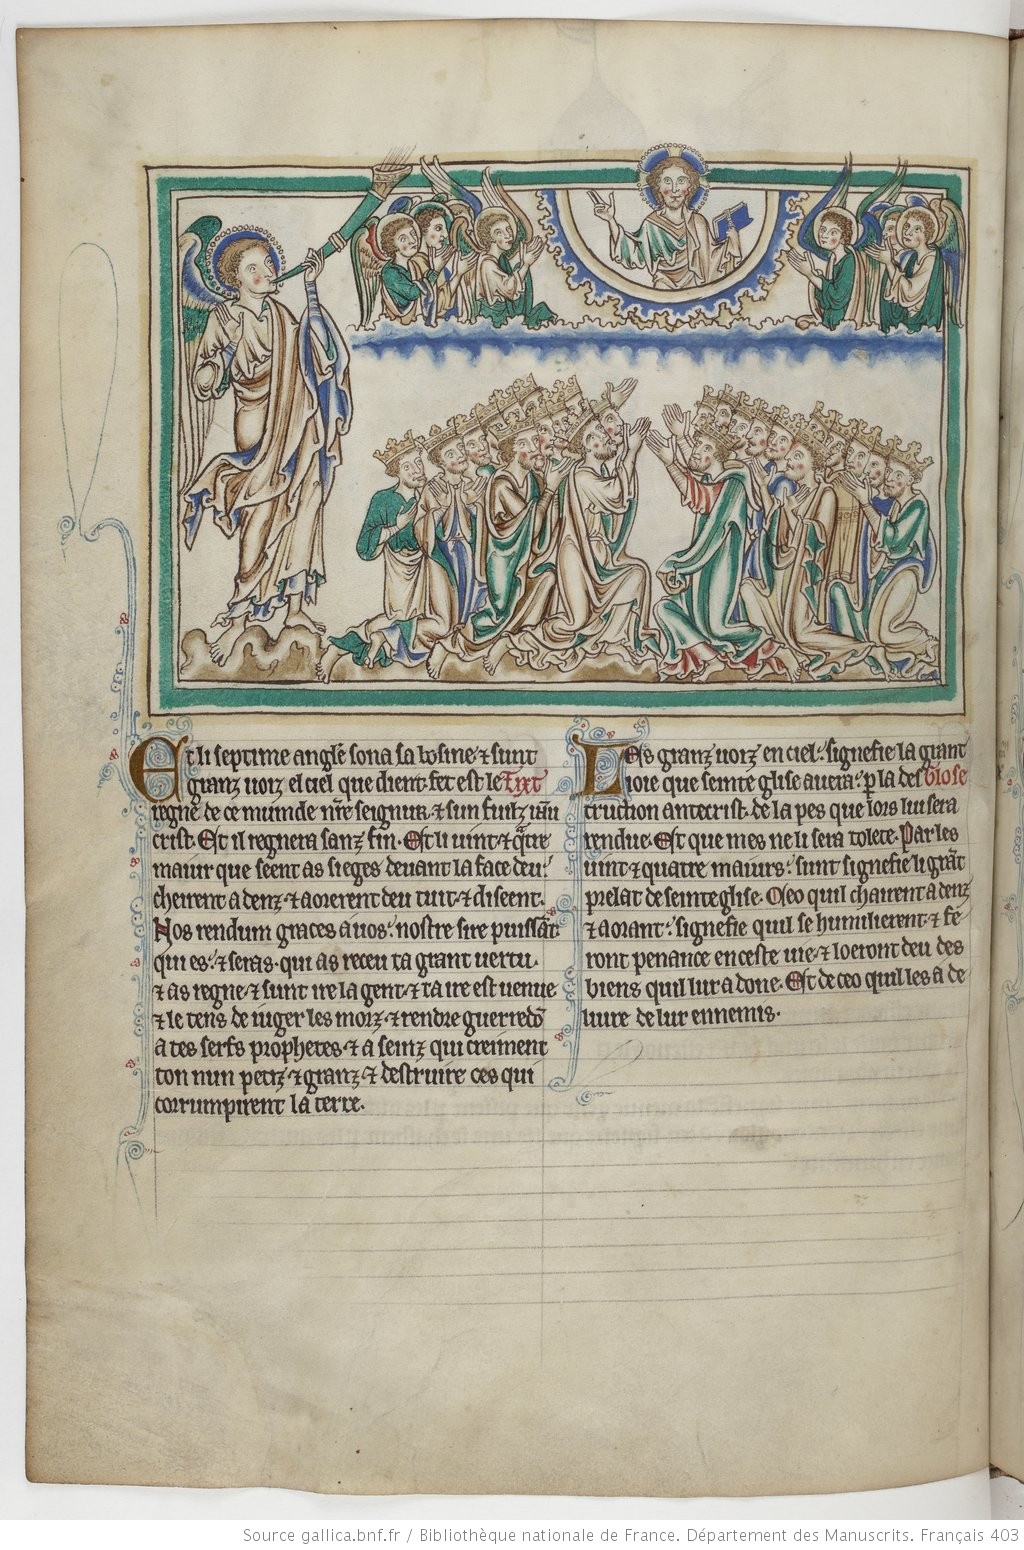 Et li septime angle sona sa bosine ⁊ sunt
granz uoiz el ciel que dient fet est le Tixt
regne de ce muinde nr̃e seignur ⁊ sun fuilz ih̃u
crist. Et il regnera sanz fin. Et li uint ⁊ q̃tre
maiur que seent as sieges deuant la face deu
cheirent a denz ⁊ aorerent deu tuit ⁊ diseent.
Nos rendum graces a uos nostre sire puissãt
qui es ⁊ seras qui as receu ta grant uertu.
⁊ as regne ⁊ sunt ire la gent ⁊ ta ire est uenue
⁊ le tens de iuger les morz ⁊ rendre guerredõ
a tes serfs prophetes ⁊ a seinz qui creiment
ton nun petiz ⁊ granz ⁊ destruire ces qui
corrumpirent la terre.
Les granz uoiz en ciel signefie la grant
ioie que seinte glise auera p̲ la des Glose
truction antecrist de la pes que lors lui sera
rendue. Et que mes ne li sera tolete. Par les
uint ⁊ quatre maiurs sunt signefie li grãt
prelat de seinte glise. Oseo quil chairent a denz
⁊ aorant signefie quil se humilierent ⁊ fe
ront penance en ceste uie ⁊ loeront deu des
biens quil lur a done. Et de ceo quil les a de
liure de lur ennemis.
Source gallica.bnf.fr / Bibliothèque nationale de France. Département des Manuscrits. Français 403